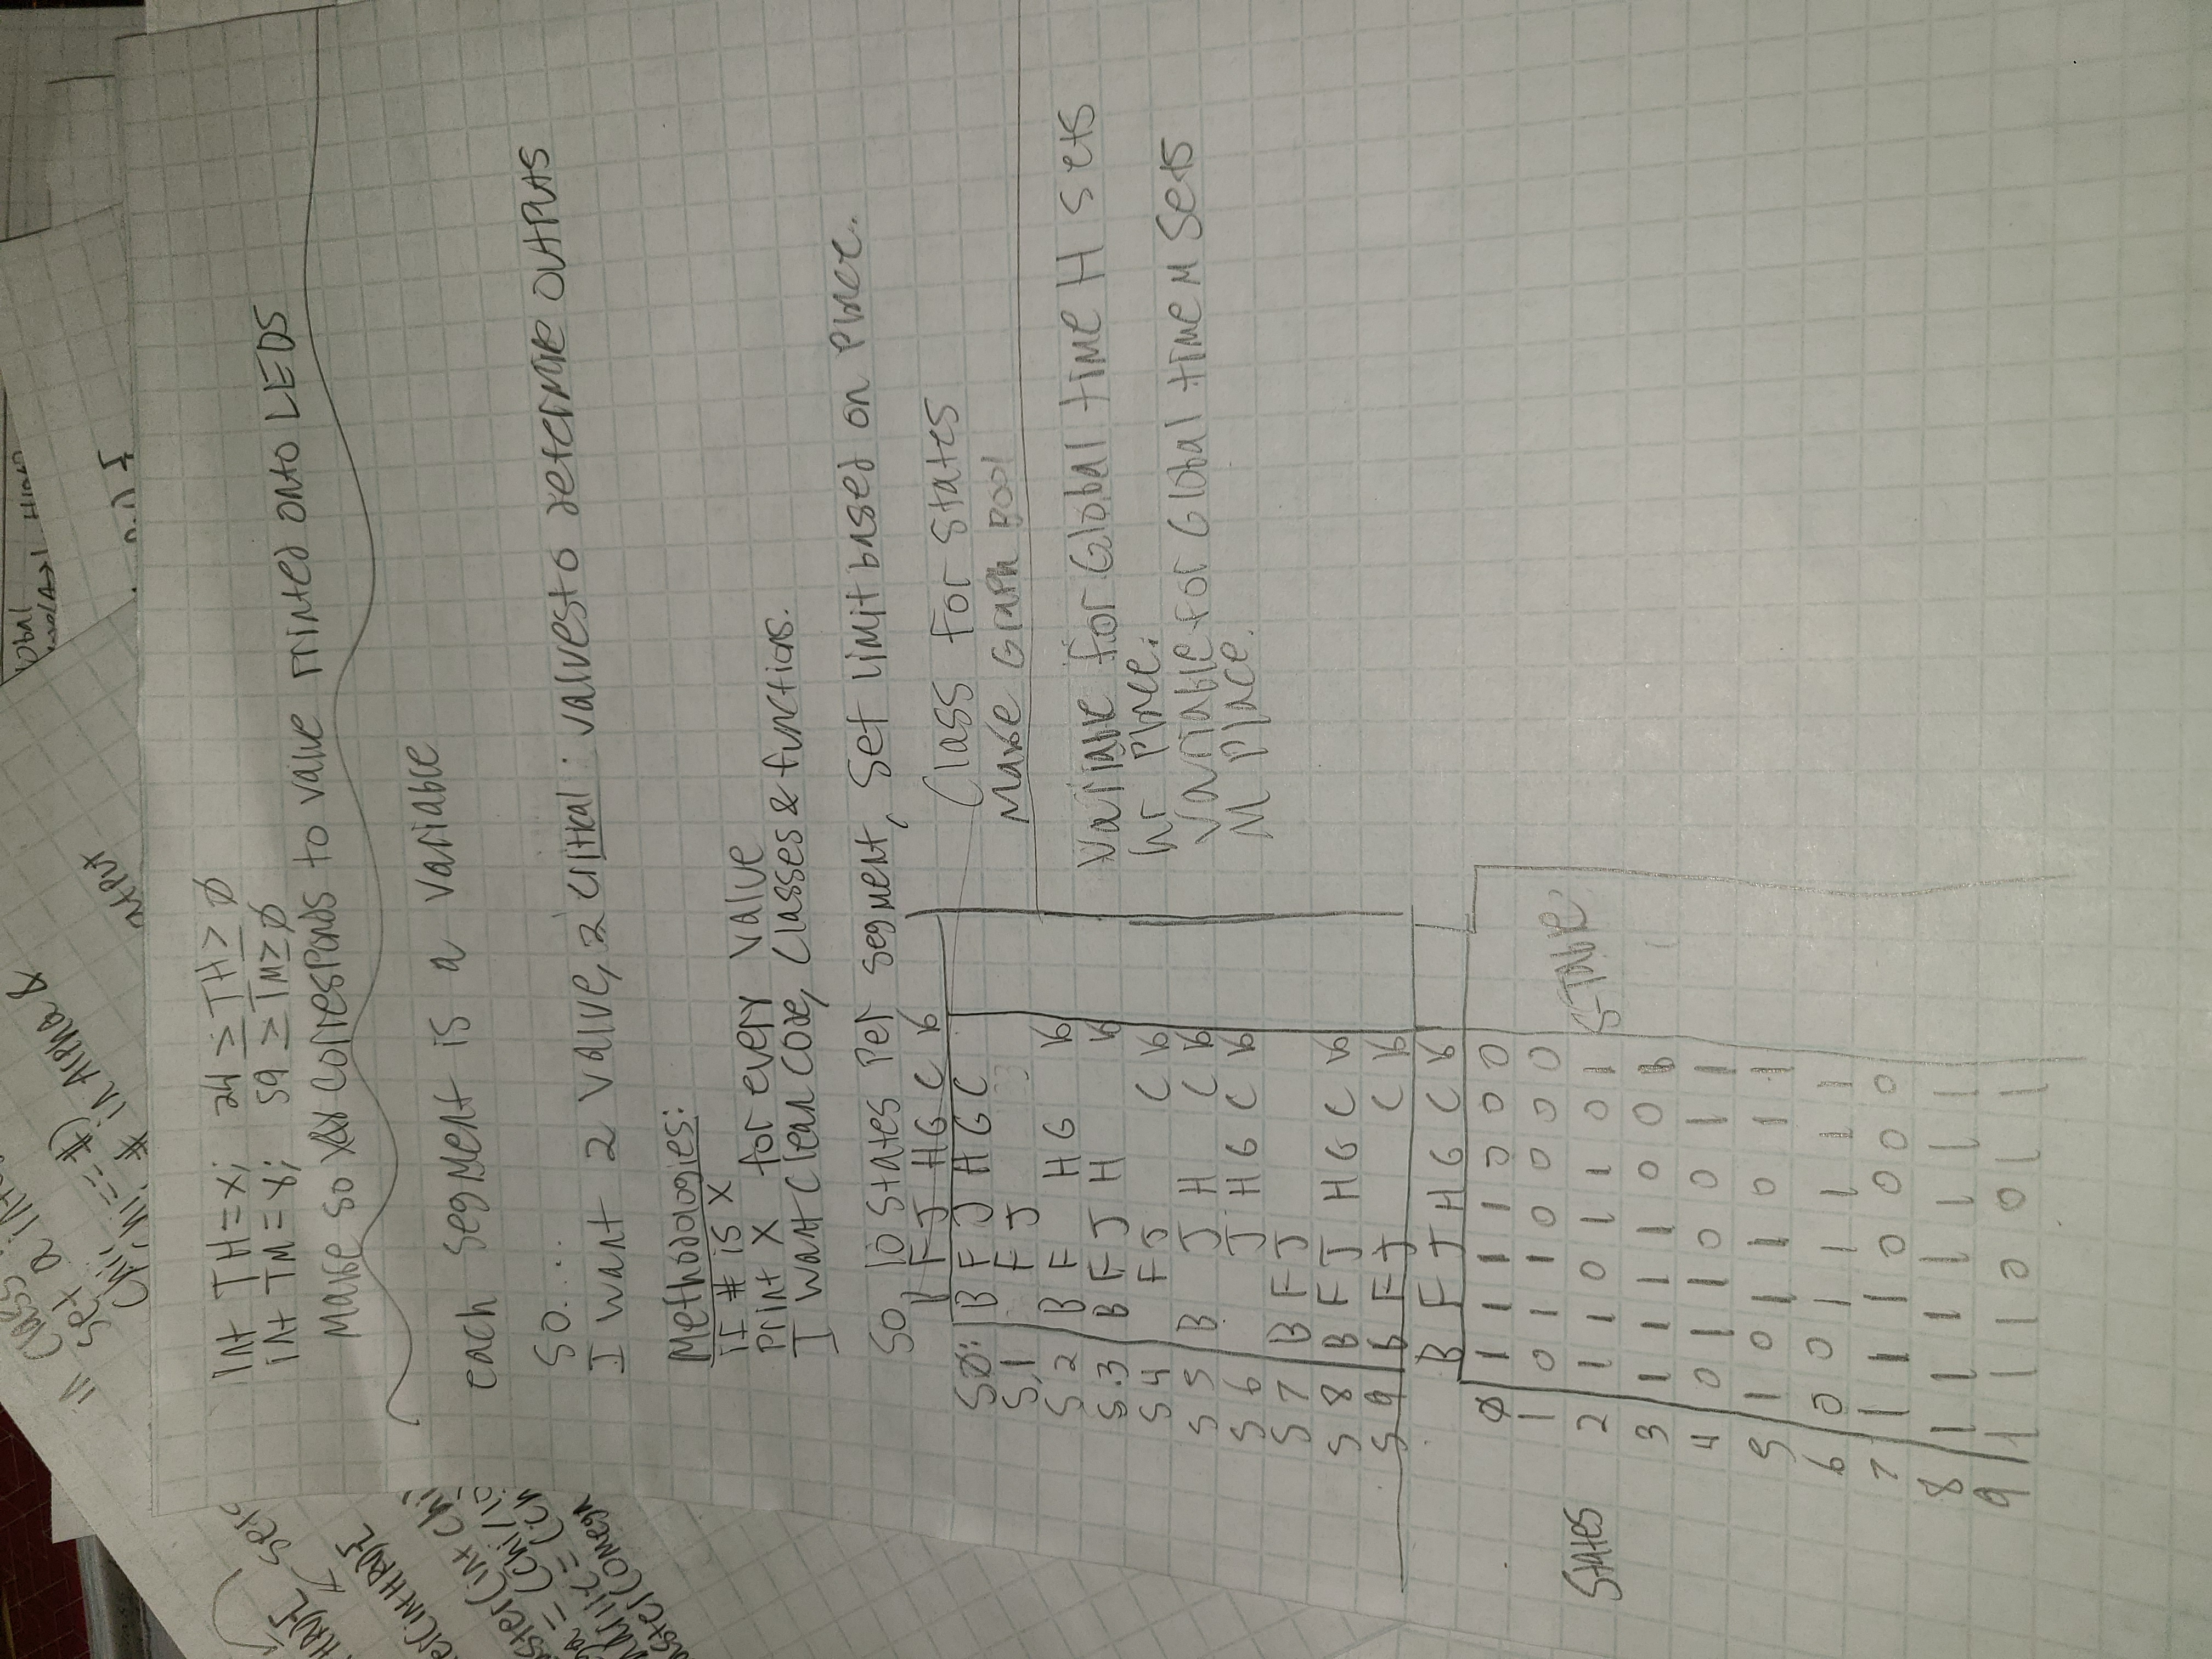 in class
set a int
Chi;
Chi == #)
# in Alpha &
output
Global
HRD){
sets
er(int HRD){
aster(int Chi)
ga = (Chi/10)
= (Ch
aster(Omega
int TH = x; 24 ≥ TH ≥ Ø
int TM = y; 59 ≥ TM ≥ Ø
Make so x&y corresponds to value printed onto LEDS
each segment is a variable
So....
I want 2 value, 2 critical: values to determine outputs
Methodologies:
if # is X
Print X for every value
I want clean code, classes & functions.
So, 10 states per segment, set limit based on place.
B F J H G C 16
SØ: B F J H G C
S.1 F J
S 2 B F H G 16
S.3 B F J H 16
S 4 F J C 16
S 5 B J H C 16
S 6 J H G C 16
S 7 B F J
S 8 B F J H G C 16
S 9 B F J C 16
Class for states
Make Graph Bool
Variable for Global time H sets
hr place.
Variable for Global time M sets
M place.
B F J H G C 16
Ø 1 1 1 1 0 0 0
1 0 1 1 0 0 0 0
States 2 1 1 0 1 1 0 1 S-Table.
3 1 1 1 1 0 0 1
4 0 1 1 0 0 1 1
5 1 0 1 1 0 1 1
6 0 0 1 1 1 1 1
7 1 1 1 0 0 0 0
8 1 1 1 1 1 1 1
9 1 1 1 0 0 1 1